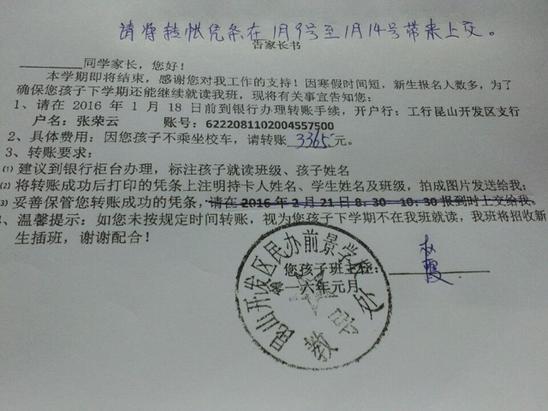 请将转帐凭条在1月9号至1月14号带来上交。
告家长书
________同学家长，您好！
本学期即将结束，感谢您对我工作的支持！因寒假时间短，新生报名人数多，为了
确保您孩子下学期还能继续就读我班，现将有关事宜告知您：
1、请在 2016 年 1 月 18 日前到银行办理转账手续，开户行：工行昆山开发区支行
户名：张荣云 账号：6222081102004557500
2、具体费用：因您孩子不乘坐校车，请转账 3365 元。
3、转账要求：
⑴ 建议到银行柜台办理，标注孩子就读班级、孩子姓名
⑵ 将转账成功后打印的凭条上注明持卡人姓名、学生姓名及班级，拍成图片发送给我；
⑶ 妥善保管您转账成功的凭条，请在 2016 年 2 月 21 日 8：30－10：30 报到时上交给我。
、温馨提示：如您未按规定时间转账，视为您孩子下学期不在我班就读，我班将招收新
生插班，谢谢配合！
您孩子班主任： 赵霞
一六年元月
昆山开发区民办前景学校
教导处